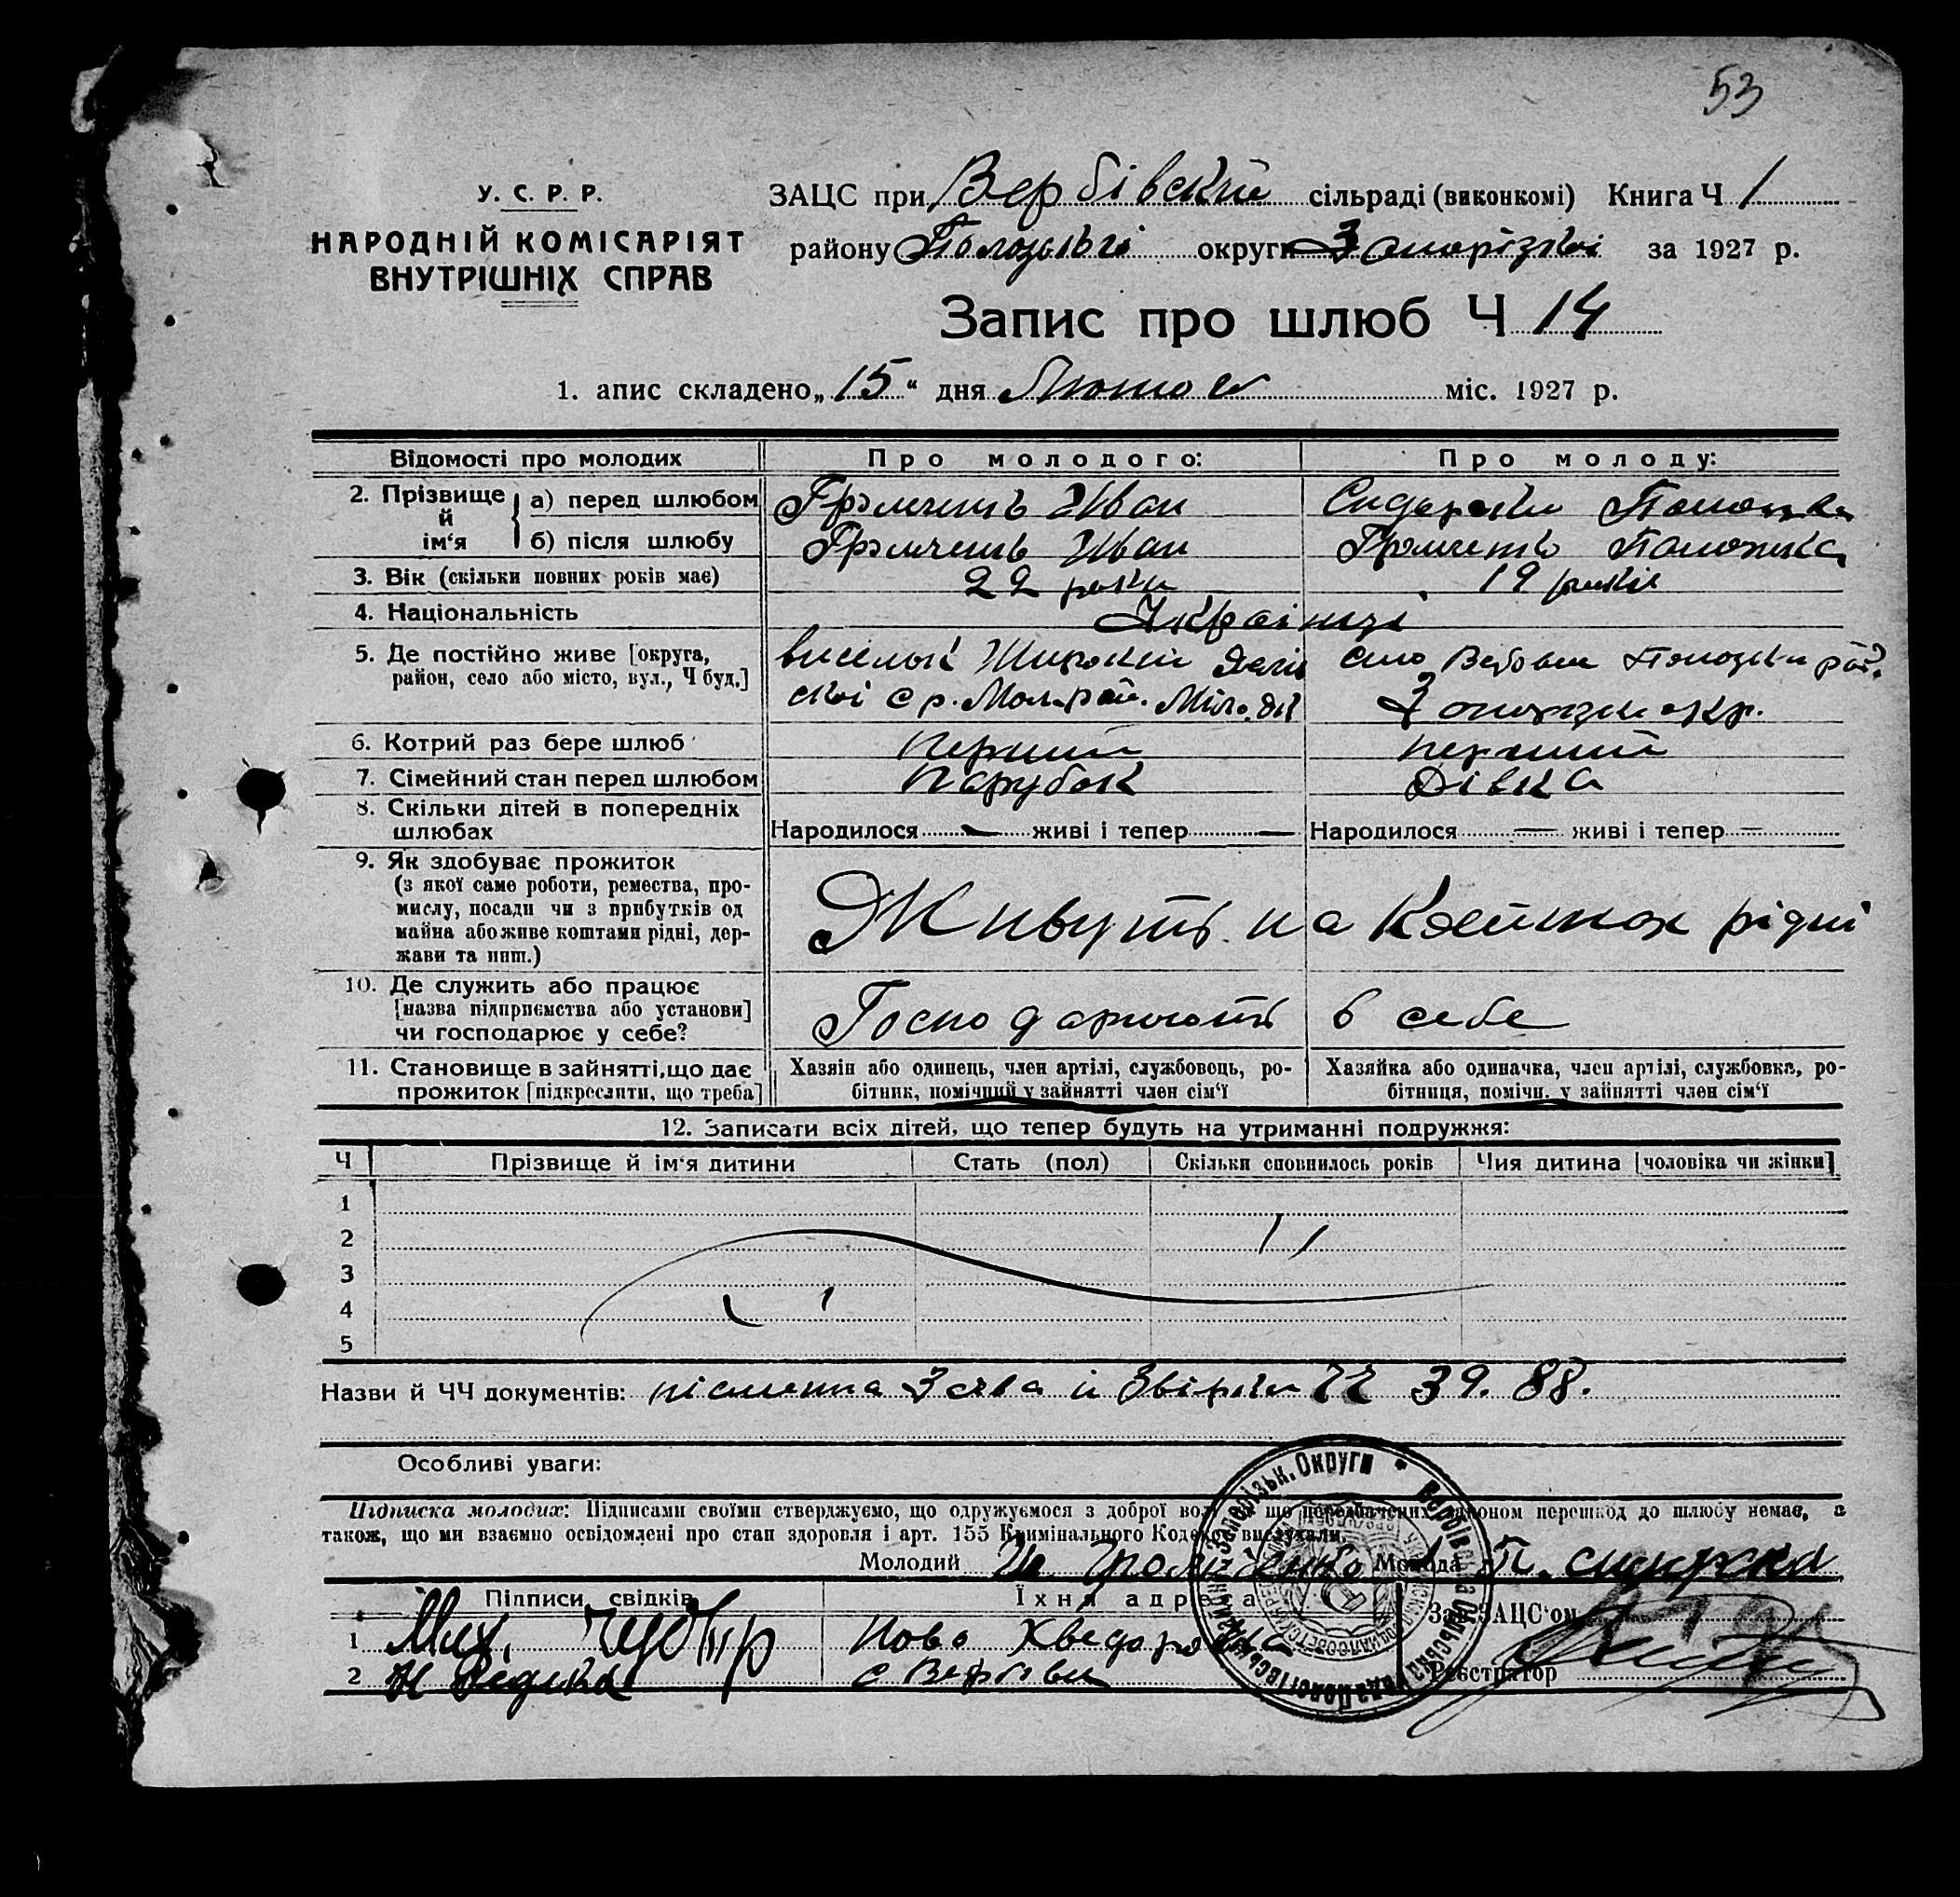 53
У. С. Р. Р.
НАРОДНІЙ КОМІСАРІЯТ
ВНУТРІШНІХ СПРАВ
ЗАЦС при Вербівскій сільраді (виконкомі) Книга Ч 1
району округи Запорізькі за 1927 р.
Запис про шлюб Ч 14
1. апис складено „15“ дня Лютого міс. 1927 р.
Відомості про молодих Про молодого: Про молоду:
2. Прізвище й ім‘я
а) перед шлюбом Громченко Иван
б) після шлюбу Громченко Иван Громченко
3. Вік (скільки повних років має) 22 роки 19 років
4. Національність Українці
5. Де постійно живе [округа, район, село або місто, вул., Ч буд.] виселок Широкий село Вербове
6. Котрий раз бере шлюб перший перший
7. Сімейний стан перед шлюбом парубок дівка
8. Скільки дітей в попередніх
шлюбах Народилося — живі і тепер — Народилося — живі і тепер —
9. Як здобуває прожиток
(з якої саме роботи, ремества, про-
мислу, посади чи з прибутків од
майна або живе коштами рідні, дер-
жави та инш.)
Живуть на Коштах рідні
10. Де служить або працює
[назва підприємства або установи]
чи господарює у себе?
Господарюють в себе
11. Становище в зайнятті, що дає
прожиток [підкреслити, що треба]
Хазяїн або одинець, член артілі, службовець, ро-
бітник, помічний у зайнятті член сім‘ї
Хазяйка або одиначка, член артілі, службовка, ро-
бітниця, помічн. у зайнятті член сім‘ї
12. Записати всіх дітей, що тепер будуть на утриманні подружжя:
Ч Прізвище й ім‘я дитини Стать (пол) Скільки сповнилось років Чия дитина [чоловіка чи жінки]
1
2
3
4
5
Назви й ЧЧ документів: письменна Заява й 39. 88.
Особливі уваги:
Підписка молодих: Підписами своїми стверджуємо, що одружуємося з доброї волі, що передбачених законом перешкод до шлюбу немає, а
також, що ми взаємно освідомлені про стан здоровля і арт. 155 Кримінального Кодексу вислухали.
Молодий Ив Громченко Молода П.
Підписи свідків Їхня адреса Зав. ЗАЦС‘ом
1 Мих. Ново
2 с Вербове Реєстратор
Запорізьк. Округи